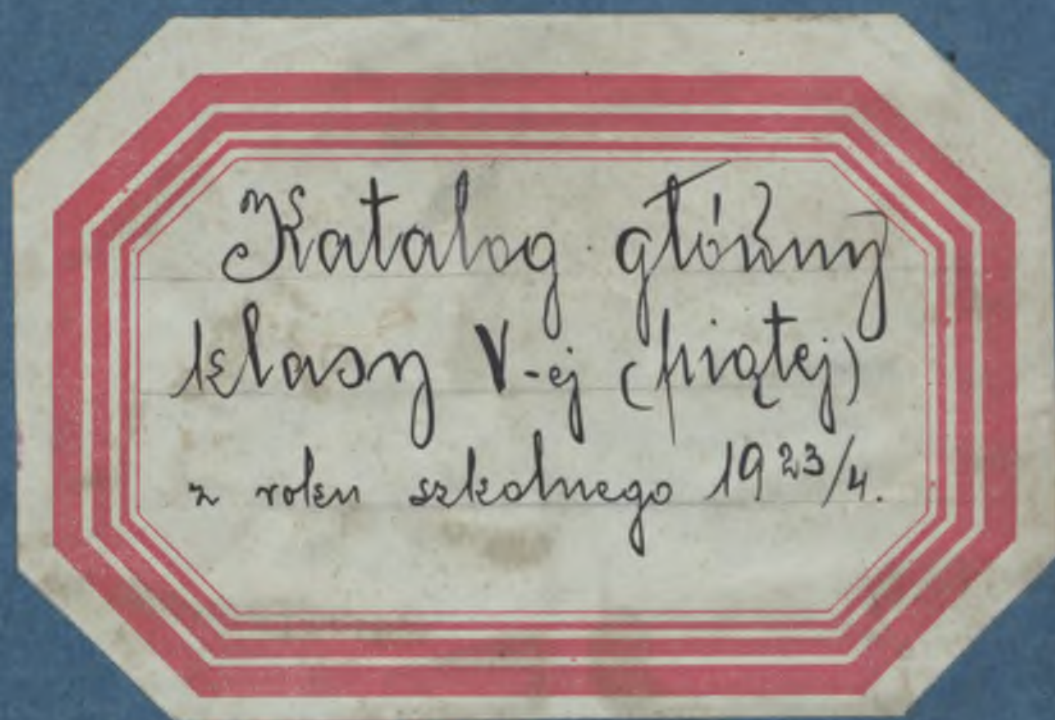 Katalog główny
klasy V-ej (piątej)
z roku szkolnego 1923/4.